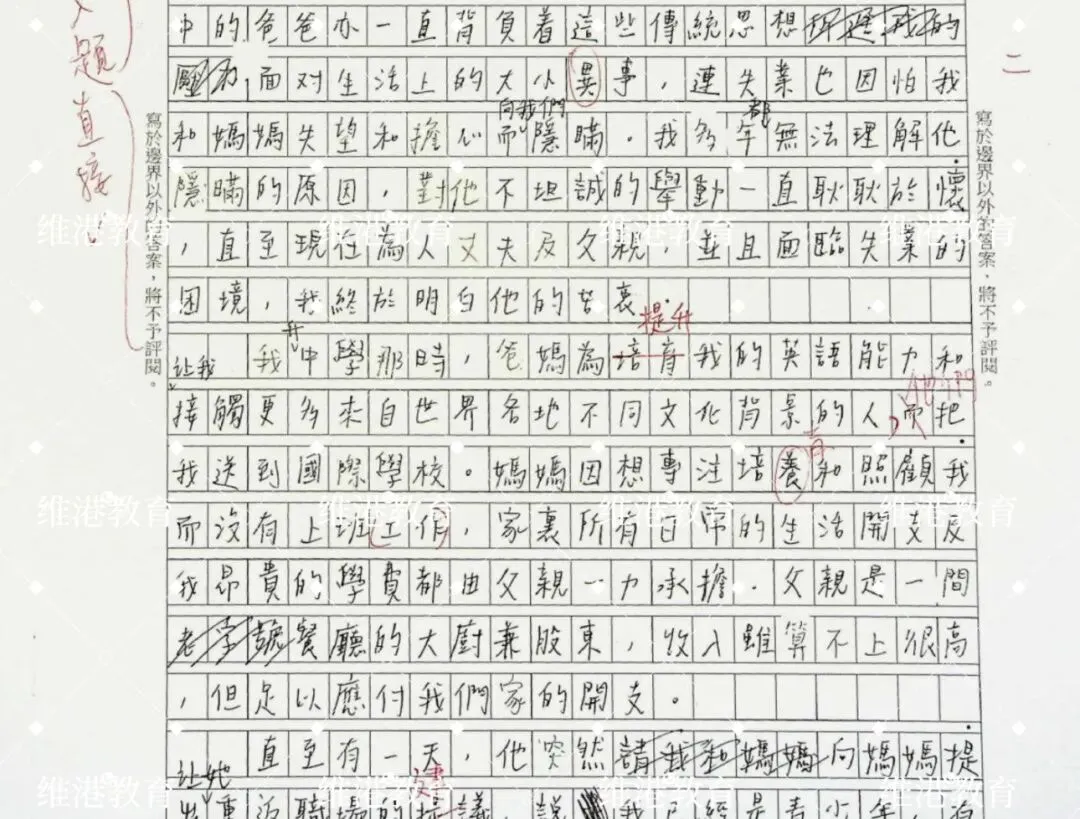 入題直接。
二
中的爸爸亦一直背負着這些傳統思想的
壓力,面对生活上的大小異事,連失業也因怕我
和媽媽失望和擔心而向我們隱瞞。我多年都無法理解他
隱瞞的原因,對他不坦誠的舉動一直耿耿於懷
,直至現在為人丈夫及父親,並且面臨失業的
困境,我終於明白他的苦衷。
我升中學那時,爸媽為培育提升我的英語能力和
让我接觸更多來自世界各地不同文化背景的人,他們而把
我送到國際學校。媽媽因想專注培養育和照顧我
而沒有上班工作,家裏所有日常的生活開支及
我昂貴的學費都由父親一力承擔。父親是一間
老字號餐廳的大廚兼股東,收入雖算不上很高
,但足以應付我們家的開支。
直至有一天,他突然請我和媽媽向媽媽提
让她重返職場的提議建,說我已經是青少年,沒
寫於邊界以外的答案,將不予評閱。
寫於邊界以外的答案,將不予評閱。
维港教育 维港教育 维港教育 维港教育
维港教育 维港教育 维港教育 维港教育
维港教育 维港教育 维港教育 维港教育